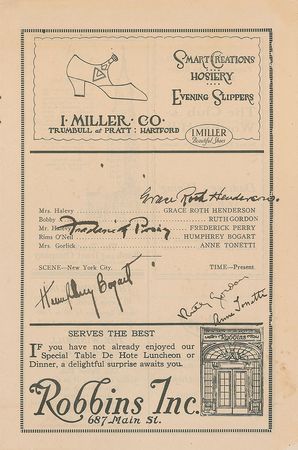 SMART CREATIONS
HOSIERY
EVENING SLIPPERS
I. MILLER · CO ·
TRUMBULL at PRATT : HARTFORD
I. MILLER
Beautiful Shoes
Grace Roth Henderson.
Mrs. Halevy GRACE ROTH HENDERSON
Bobby RUTH GORDON
Mr. Halevy FREDERICK PERRY
Frederick Perry
Rims O'Neil HUMPHREY BOGART
Mrs. Gorlick ANNE TONETTI
SCENE—New York City. TIME—Present
Humphrey Bogart
Ruth Gordon
Anne Tonetti
SERVES THE BEST
IF you have not already enjoyed our
Special Table De Hote Luncheon or
Dinner, a delightful surprise awaits you.
Robbins Inc.
687 Main St.